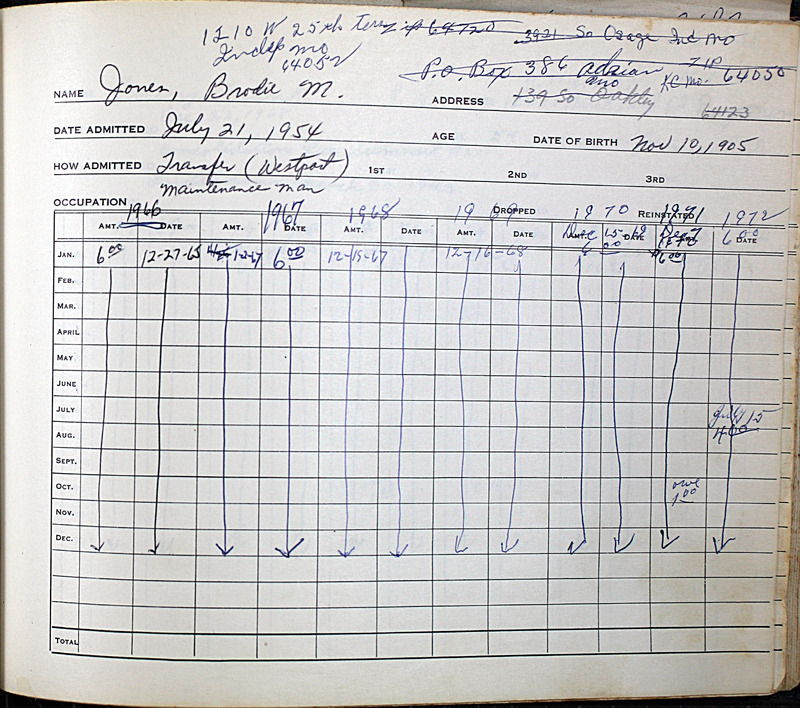 1210 W 25th Terr Zip 64720 3921 So Osage Ind Mo
Indep Mo
64052 P.O. Box 386 Adrian Mo ZIP 64050
NAME Jones, Brodie M. ADDRESS 139 So Oakley KC Mo. 64123
DATE ADMITTED July 21, 1954 AGE DATE OF BIRTH Nov 10, 1905
HOW ADMITTED Transfer (Westport) 1ST 2ND 3RD
OCCUPATION Maintenance Man
1966 1967 1968 1969 DROPPED 1970 REINSTATED 1971 1972
AMT. DATE AMT. DATE AMT. DATE AMT. DATE AMT. DATE DATE
Dec 15-69 Dec 7 1970 6 00
JAN. 6 00 12-27-65 1-2-67 6 00 12-15-67 12-16-68 6 00 $6 00
FEB.
MAR.
APRIL
MAY
JUNE
JULY July 15
AUG. 4 00
SEPT.
OCT. owe
1 00
NOV.
DEC.
TOTAL